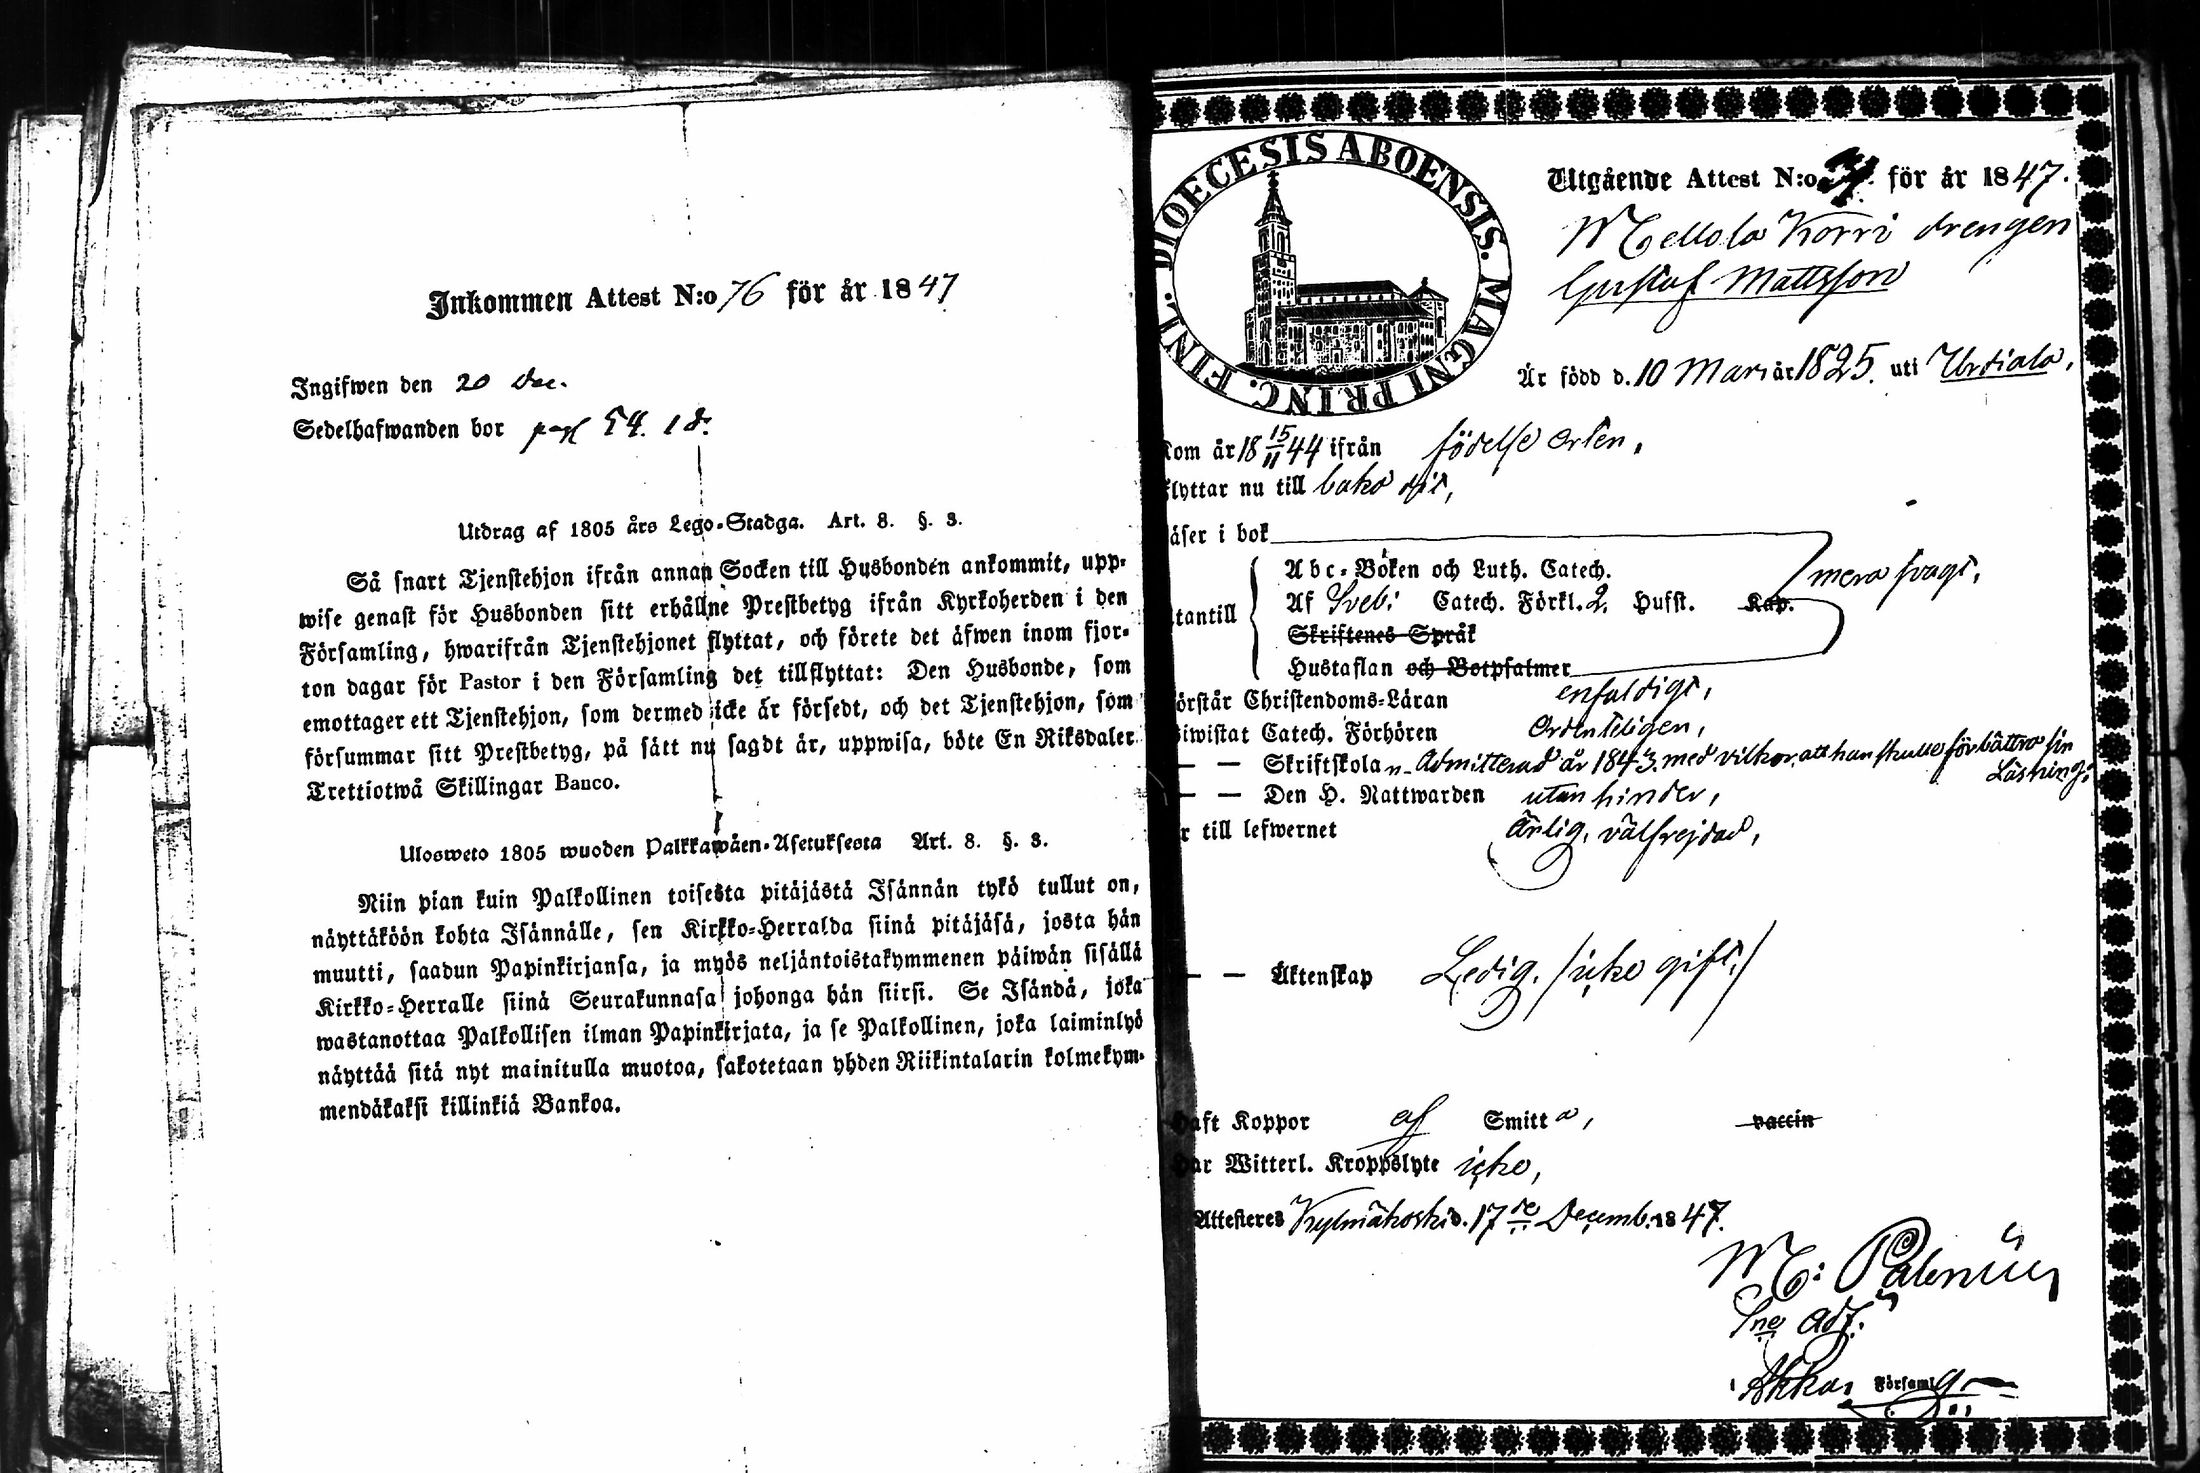 Inkommen Attest N:o 76 för år 1847
Ingifwen den 20 Dec.
Sedelhafwanden bor pag 54. 18.
Utdrag af 1805 års Lego-Stadga. Art. 8. §. 3.
Så snart Tjenstehjon ifrån annan Socken till Husbonden ankommit, upp-
wise genast för Husbonden sitt erhållne Prestbetyg ifrån Kyrkoherden i den
Församling, hwarifrån Tjenstehjonet flyttat, och förete det äfwen inom fjor-
ton dagar för Pastor i den Församling det tillflyttat: Den Husbonde, som
emottager ett Tjenstehjon, som dermed icke är försedt, och det Tjenstehjon, som
försummar sitt Prestbetyg, på sätt nu sagdt är, uppwisa, böte En Riksdaler
Trettiotwå Skillingar Banco.
Ulosweto 1805 wuoden Palkkawäen-Asetuksesta Art. 8. §. 3.
Niin pian kuin Palkollinen toisesta pitäjästä Isännän tykö tullut on,
näyttäköön kohta Isännälle, sen Kirkko-Herralda siinä pitäjäsä, josta hän
muutti, saadun Papinkirjansa, ja myös neljäntoistakymmenen päiwän sisällä
Kirkko-Herralle siinä Seurakunnasa johonga hän siirsi. Se Isändä, joka
wastanottaa Palkollisen ilman Papinkirjata, ja se Palkollinen, joka laiminlyö
näyttää sitä nyt mainitulla muotoa, sakotetaan yhden Riikintalarin kolmekym-
mendäkaksi killinkiä Bankoa.
DIOECESIS ABOENSIS. MAGNI PRINC. FINL.
Utgående Attest N:o för år 1847.
Mellola Korri drengen
Gustaf Mattsson
Är född d. 10 Mars år 1825. uti Urdiala,
Kom år 18 15/11 44 ifrån födelse orten,
flyttar nu till baka dit,
läser i bok
Abc-Boken och Luth. Catech. mera svagt,
Af Svebi Catech. Förkl. 2. Hufst. Kap.
utantill
Skriftenes Språk
Hustaflan och Botpsalmer
förstår Christendoms-Läran enfaldigt,
biwistat Catech. Förhören Ordenteligen,
— — Skriftskolan Admitterad år 1843. med vilkor, att han skulle förbättra sin
Läsning;
— — Den H. Nattwarden utan hinder,
är till lefwernet ärlig, välfrejdad,
— — Äktenskap Ledig. /icke gift./
Haft Koppor af Smitta, vaccin
Har Witterl. Kroppslyte icke,
Attesteres Kylmäkoski d. 17de Decemb. 1847.
M: Palenius
Sne adj.
i Akkas Församlg